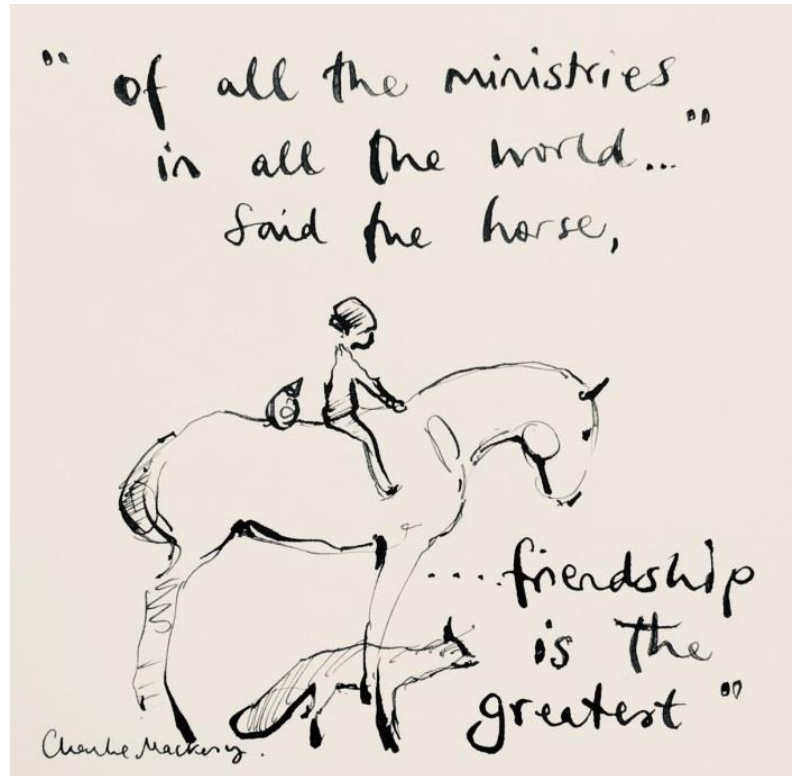 " of all the ministries
in all the world... "
Said the horse,
....friendship
is the
greatest "
Charlie Mackesy.